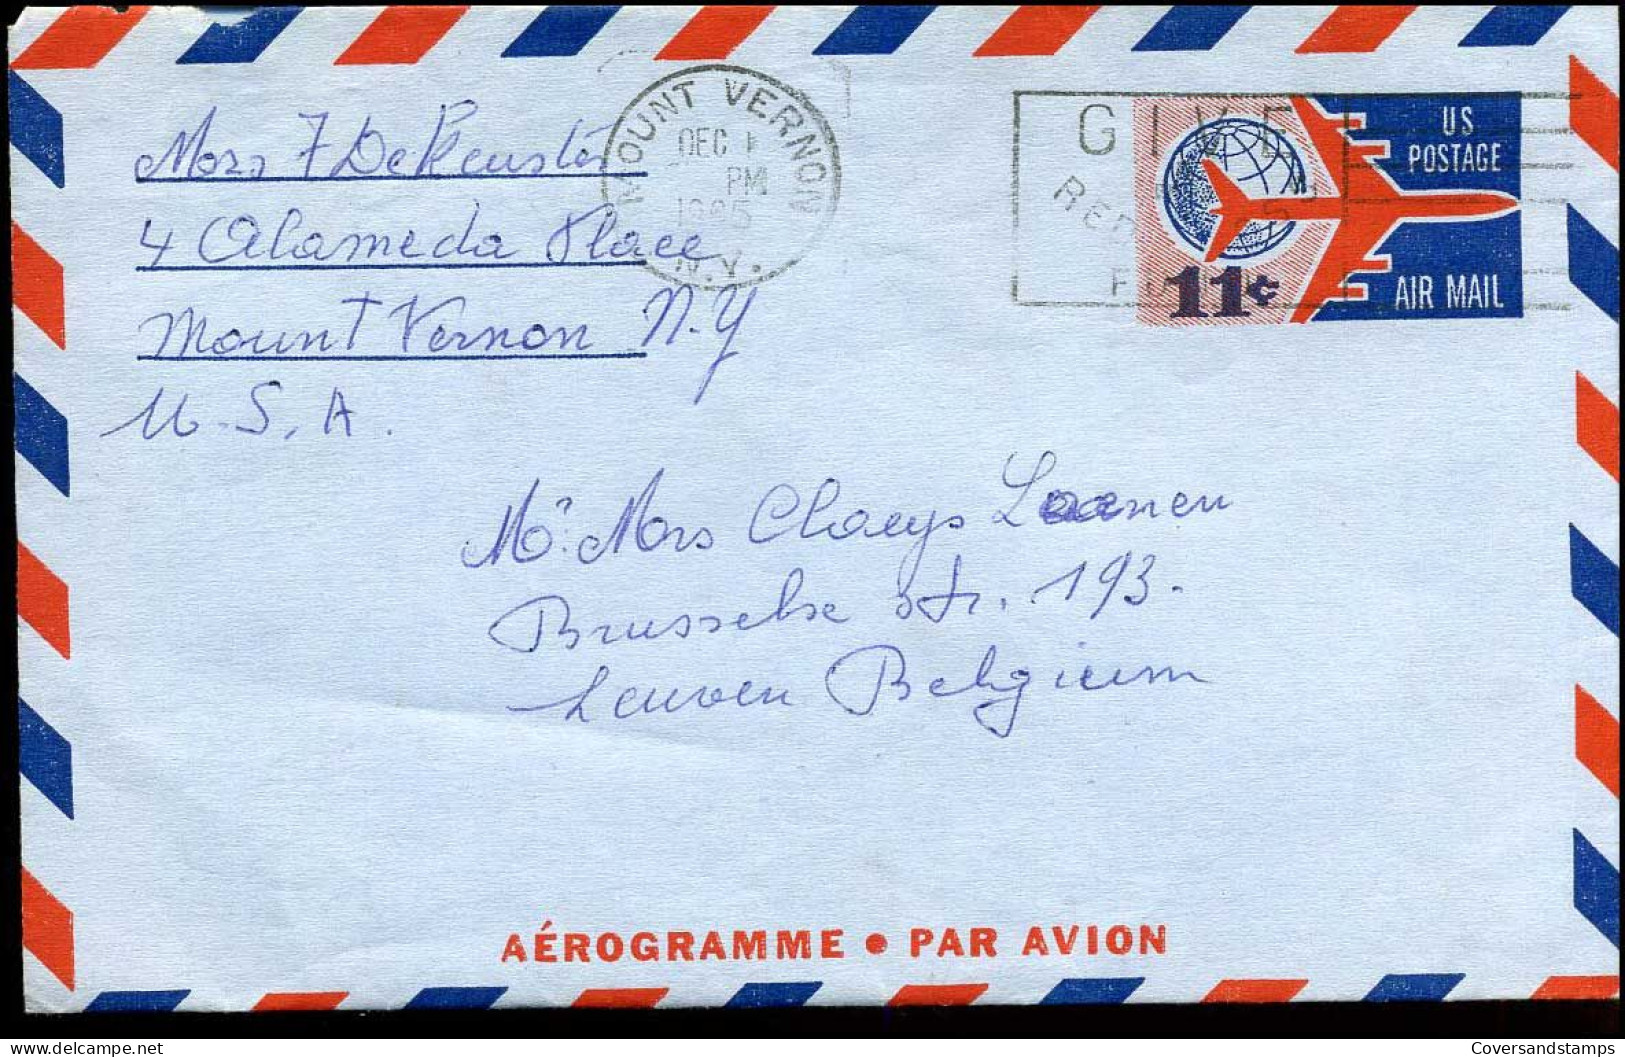 Mrs F DeKeuster
4 Alameda Place
Mount Vernon N.Y
U.S.A.
MOUNT VERNON
DEC
PM
1965
N.Y.
GIVE
11¢
US
POSTAGE
AIR MAIL
Mr. Mrs Claeys Laenen
Brusselse str. 193.
Leuven Belgium
AÉROGRAMME • PAR AVION
delcampe.net
Coversandstamps